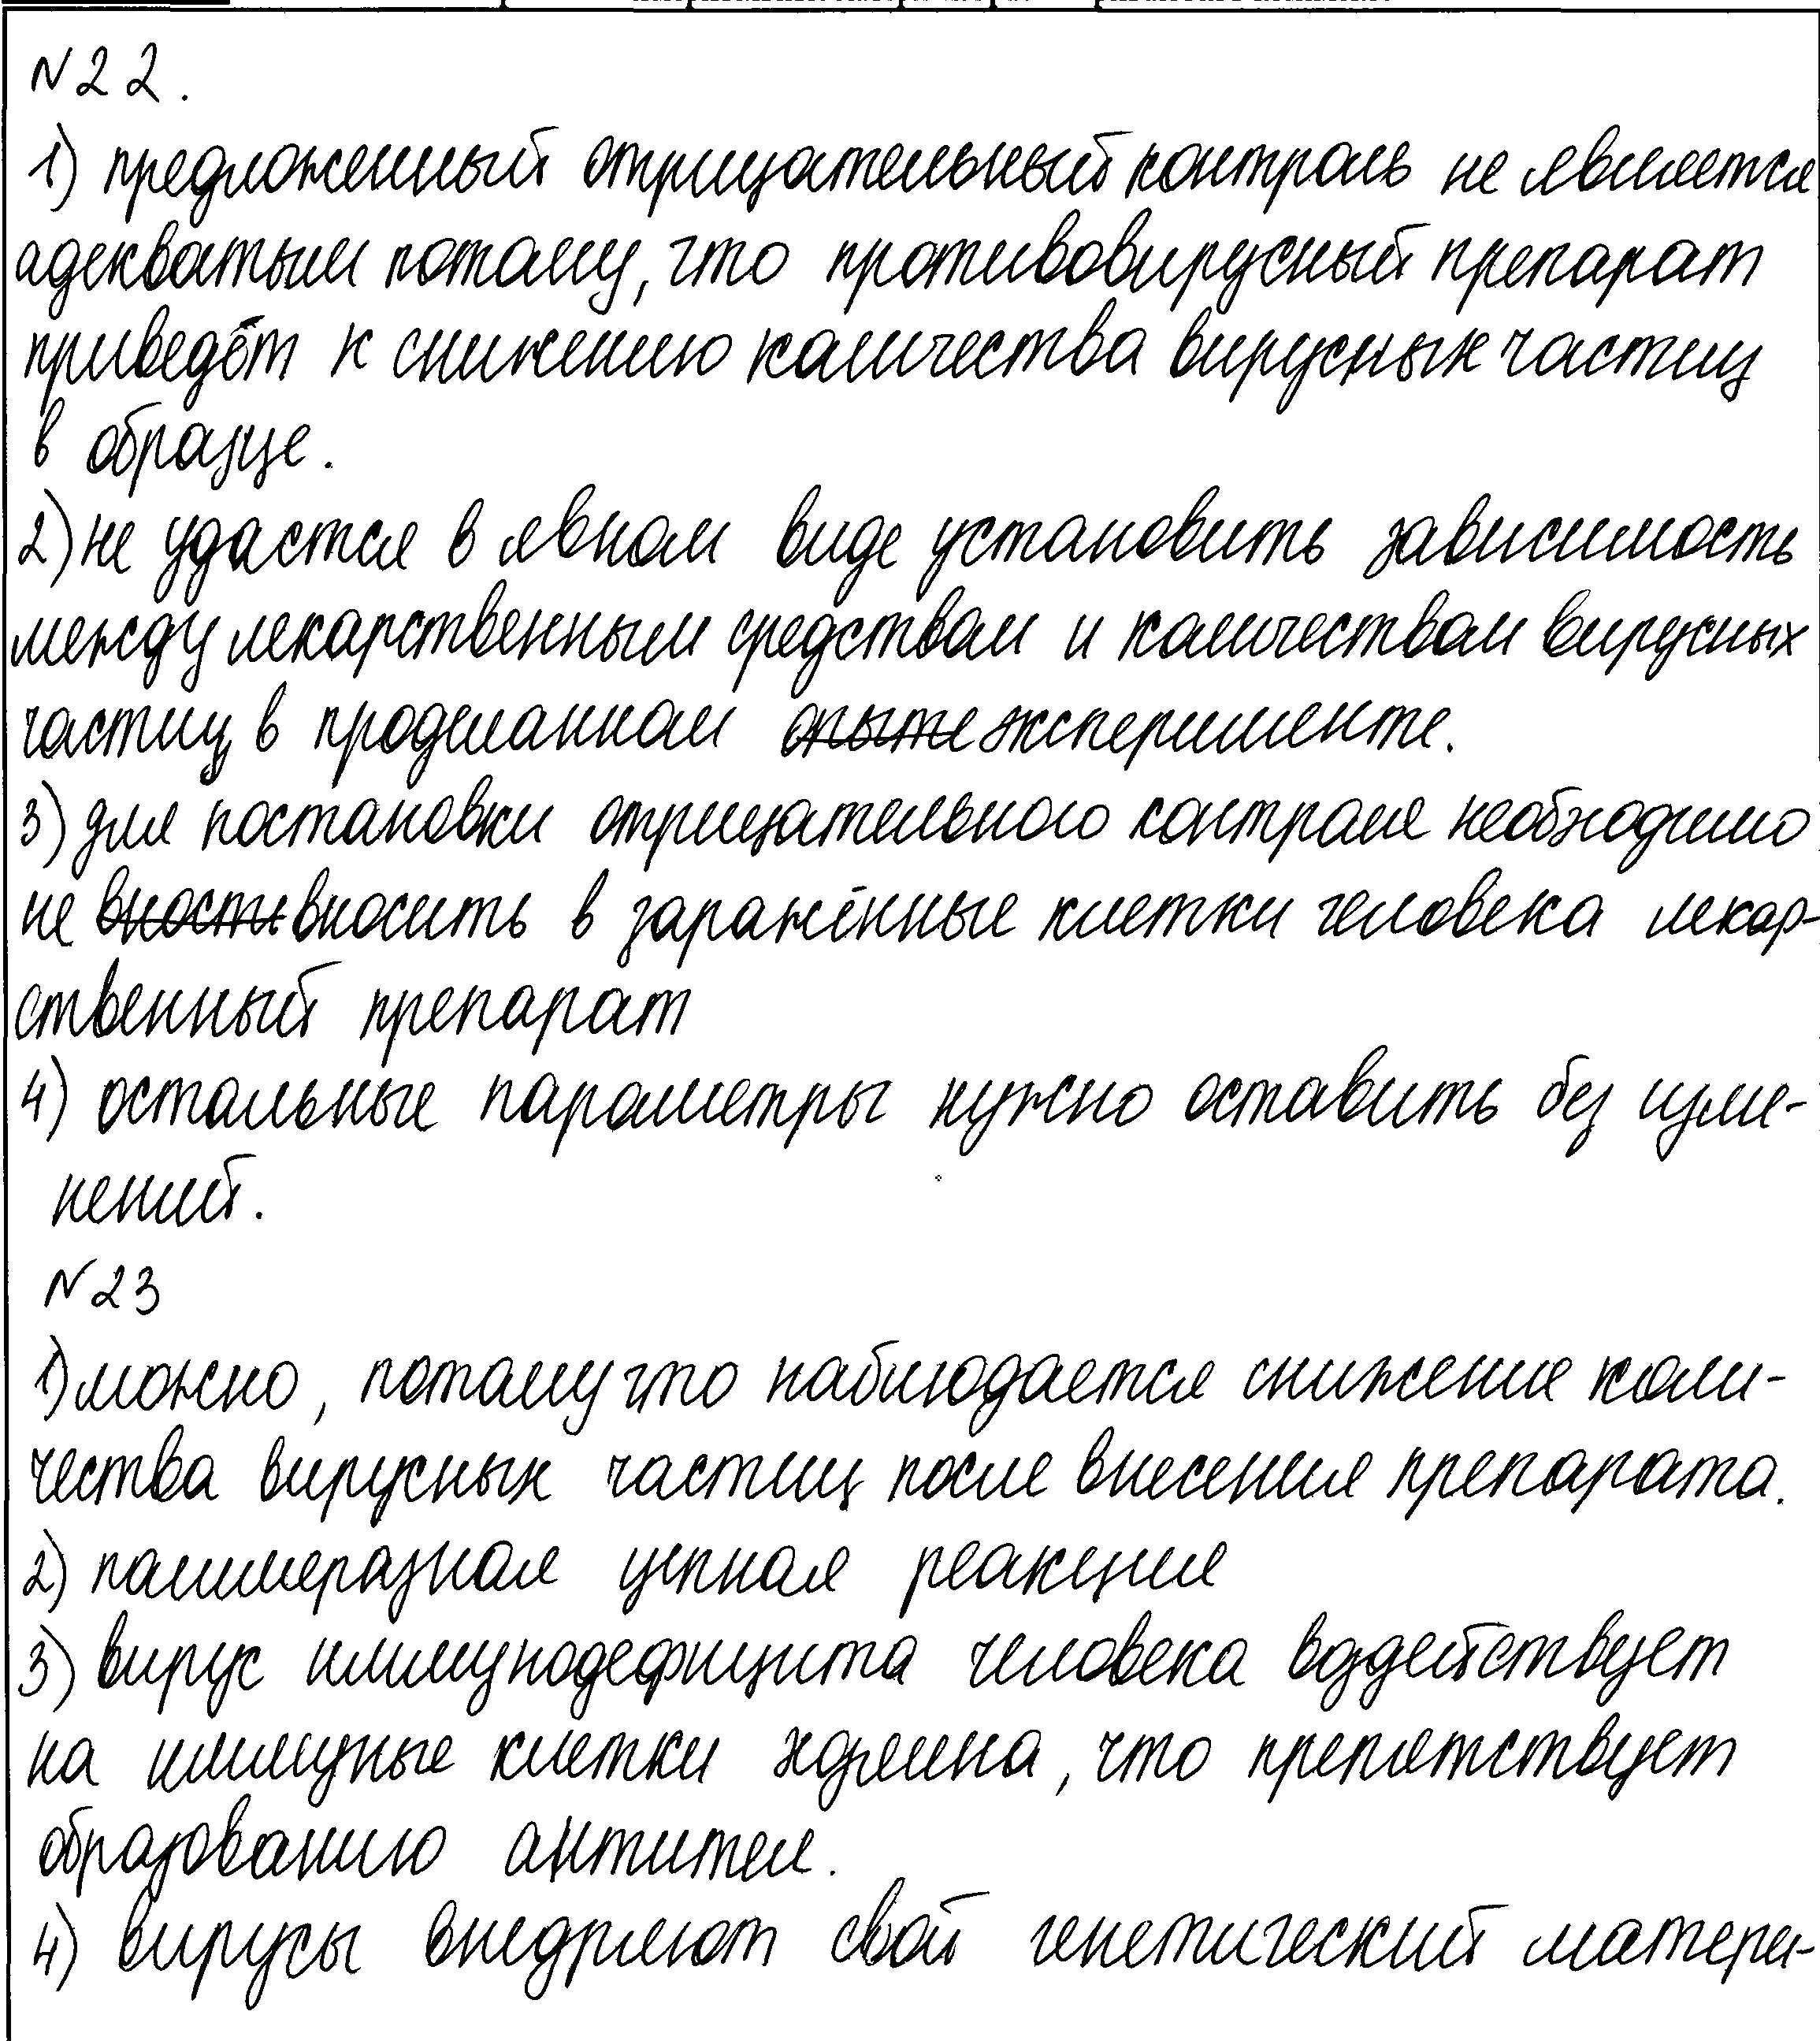 №22.
1) предложенный отрицательный контроль не является
адекватым потому, что противовирусный препарат
приведёт к снижению количества вирусных частиц
в образце.
2) не удастся в явном виде установить зависимость
между лекарственным средством и количеством вирусных
частиц в проделанном опыте эксперименте.
3) для постановки отрицательного контроля необходимо
не вности вносить в заражённые клетки человека лекар-
ственный препарат
4) остальные параметры нужно оставить без изме-
нений.
№23
1) можно, потому что наблюдается снижение коли-
чества вирусных частиц после внесения препарата.
2) полимеразная цепная реакция
3) вирус иммунодефицита человека воздействует
на иммуные клетки хозяина, что препятствует
образованию антител.
4) вирусы внедряют свой генетический матери-